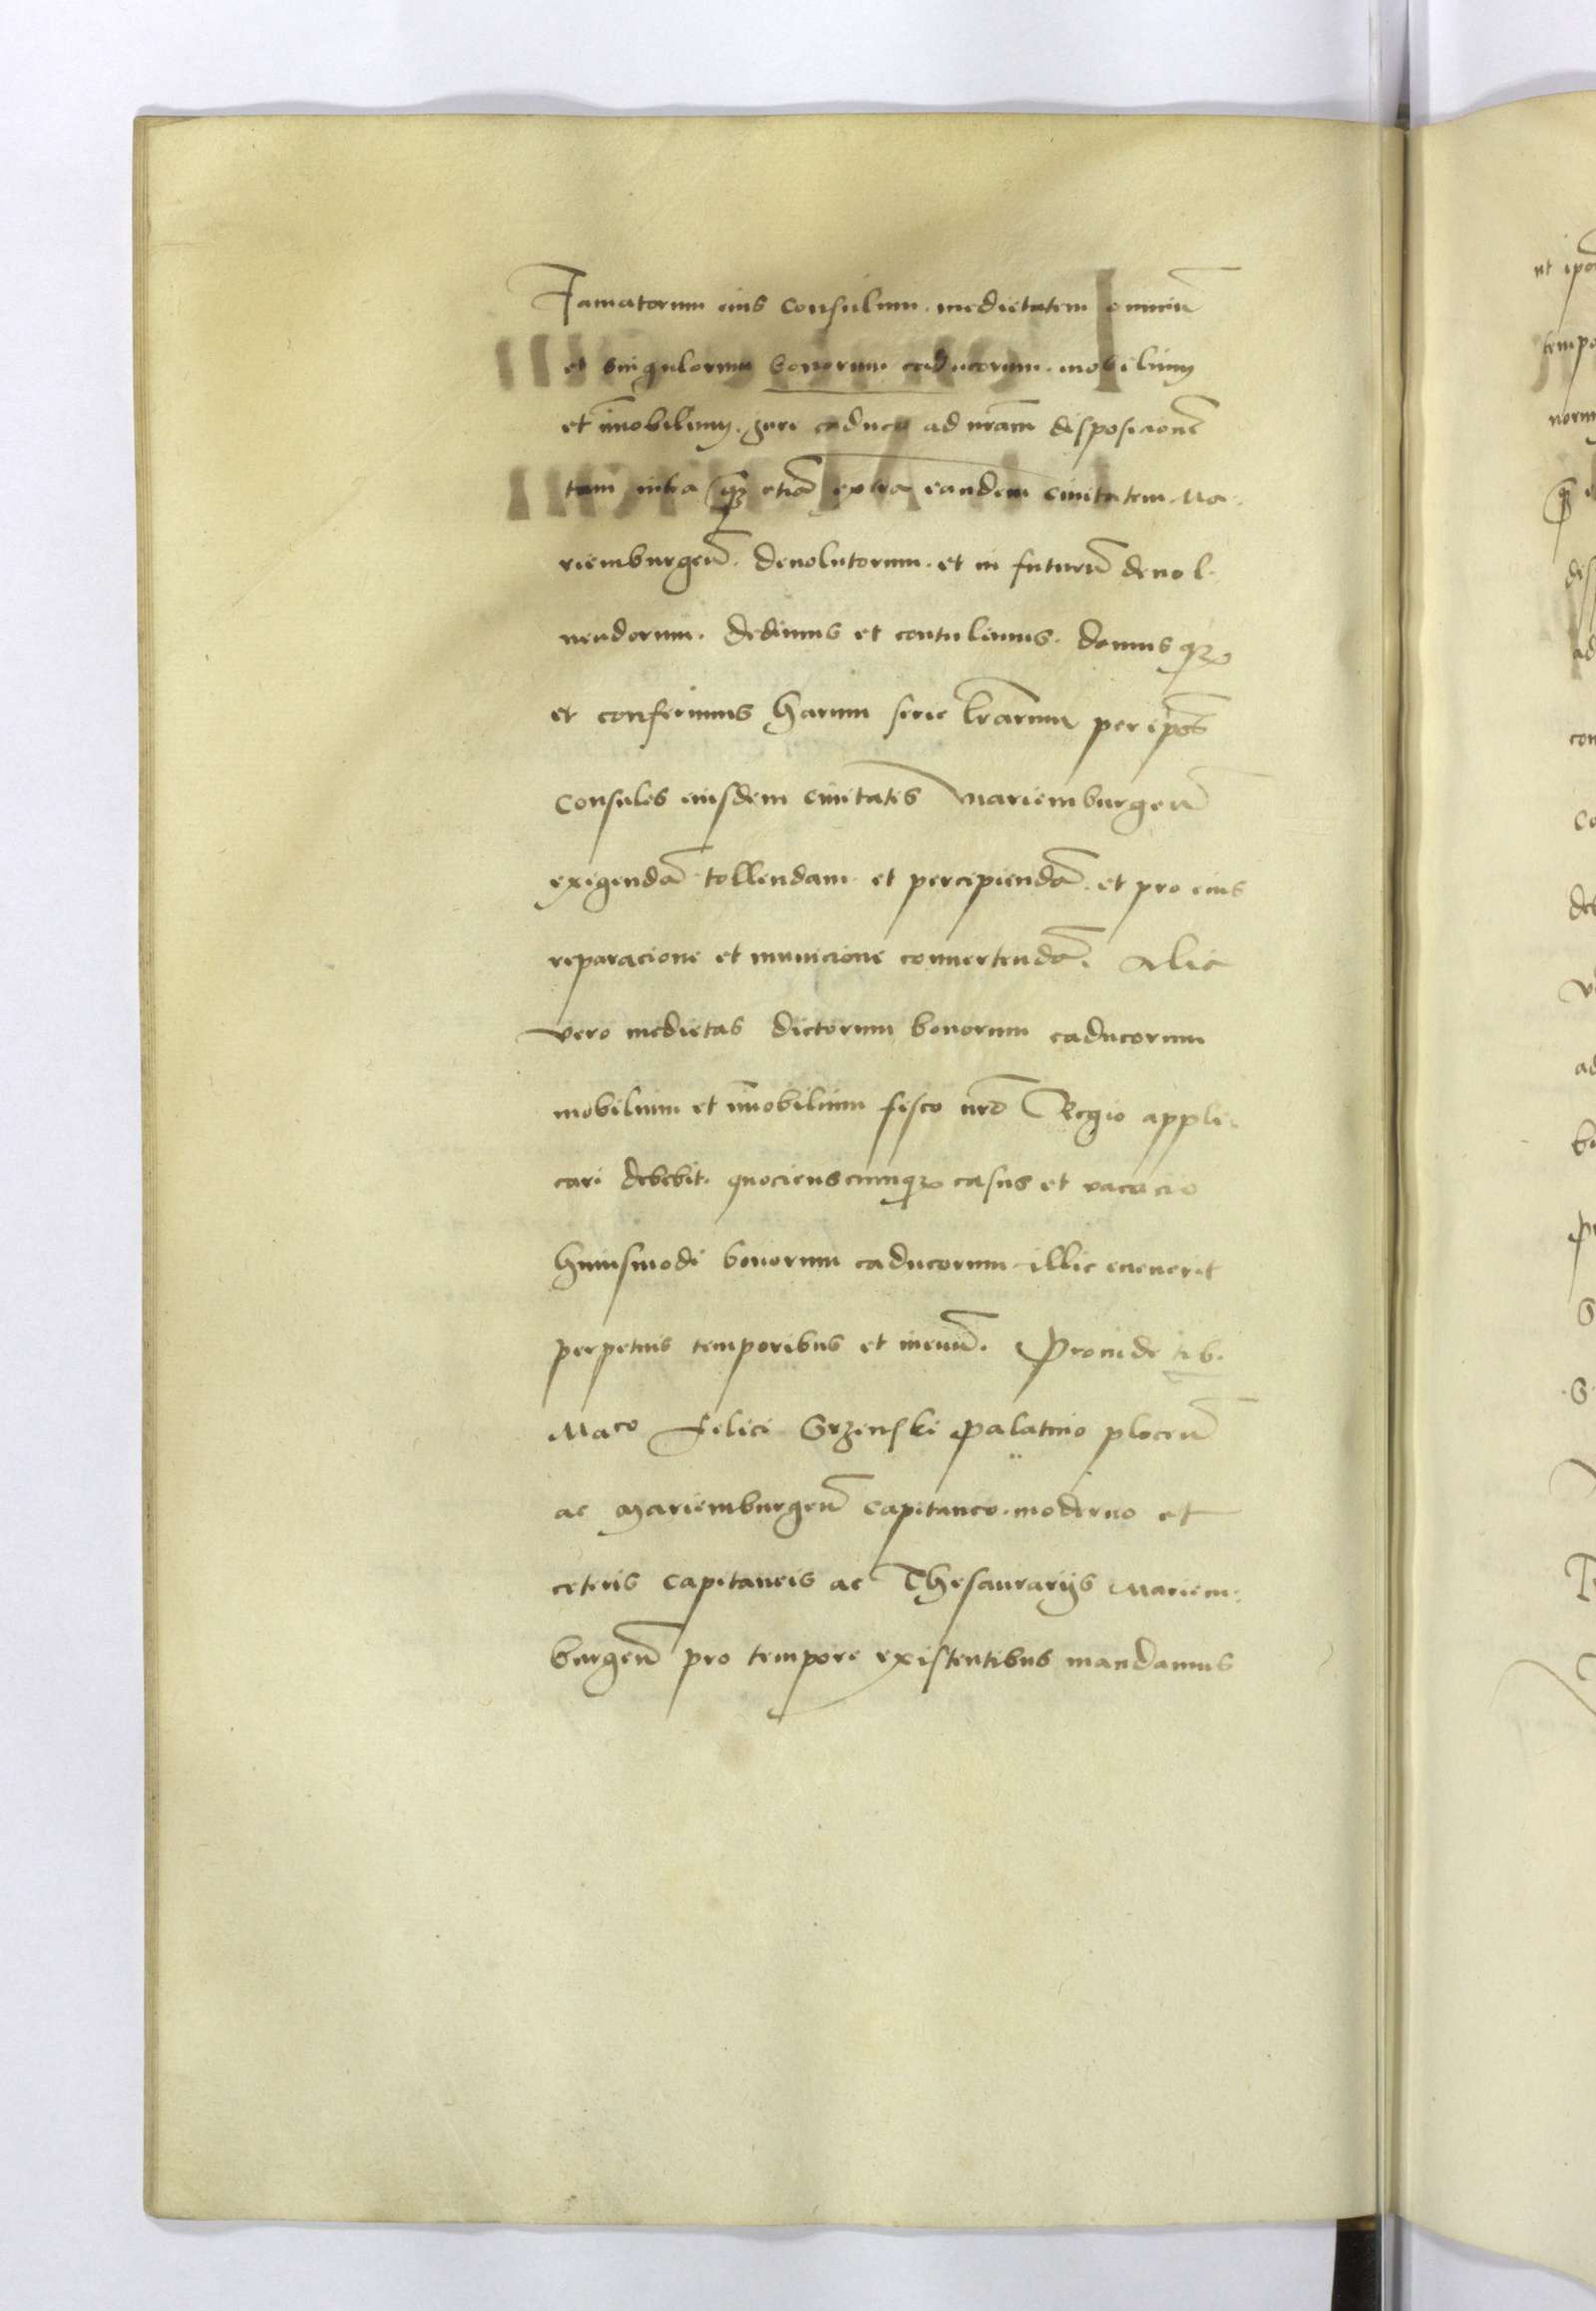 Famatorum eius consulum. medietatem omniũ
et singulorum bonorum caducorum. mobilium
et im̃obilium. iure caduco ad nr̃am disposicionẽ
tam intra q̃ꝫ etiã extra eandem ciuitatem. Ma-
riemburgeñ. deuolutorum. et in futurũ deuol-
uendorum. dedimus et contulimus. damusqꝫ
et conferimus harum serie lr̃arum per ip̃os
consules eiusdem ciuitatis Mariemburgeñ
exigendã tollendam et percipiendã. et pro eius
reparacione et municione conuertendã. Alia
vero medietas dictorum bonorum caducorum
mobilium et im̃obilium fisco nr̃o Regio appli-
cari debebit. quocienscunqꝫ casus et vacacio
huiusmodi bonorum caducorum illic euenerit
perpetuis temporibus et in euũ. Proinde tib.
Maco Felici Srzenski palatino ploceñ
ac Mariemburgeñ capitaneo. moderno et
ceteris capitaneis ac Thesaurarijs Mariem-
burgeñ pro tempore existentibus mandamus